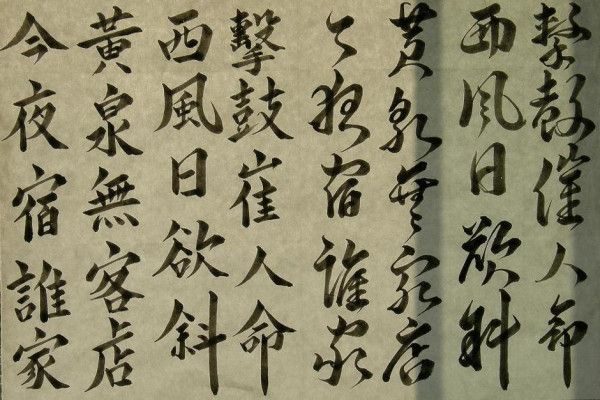 擊鼓催人命
西風日欲斜
黃泉無客店
今夜宿誰家
擊鼓崔人命
西風日欲斜
黃泉無客店
今夜宿誰家